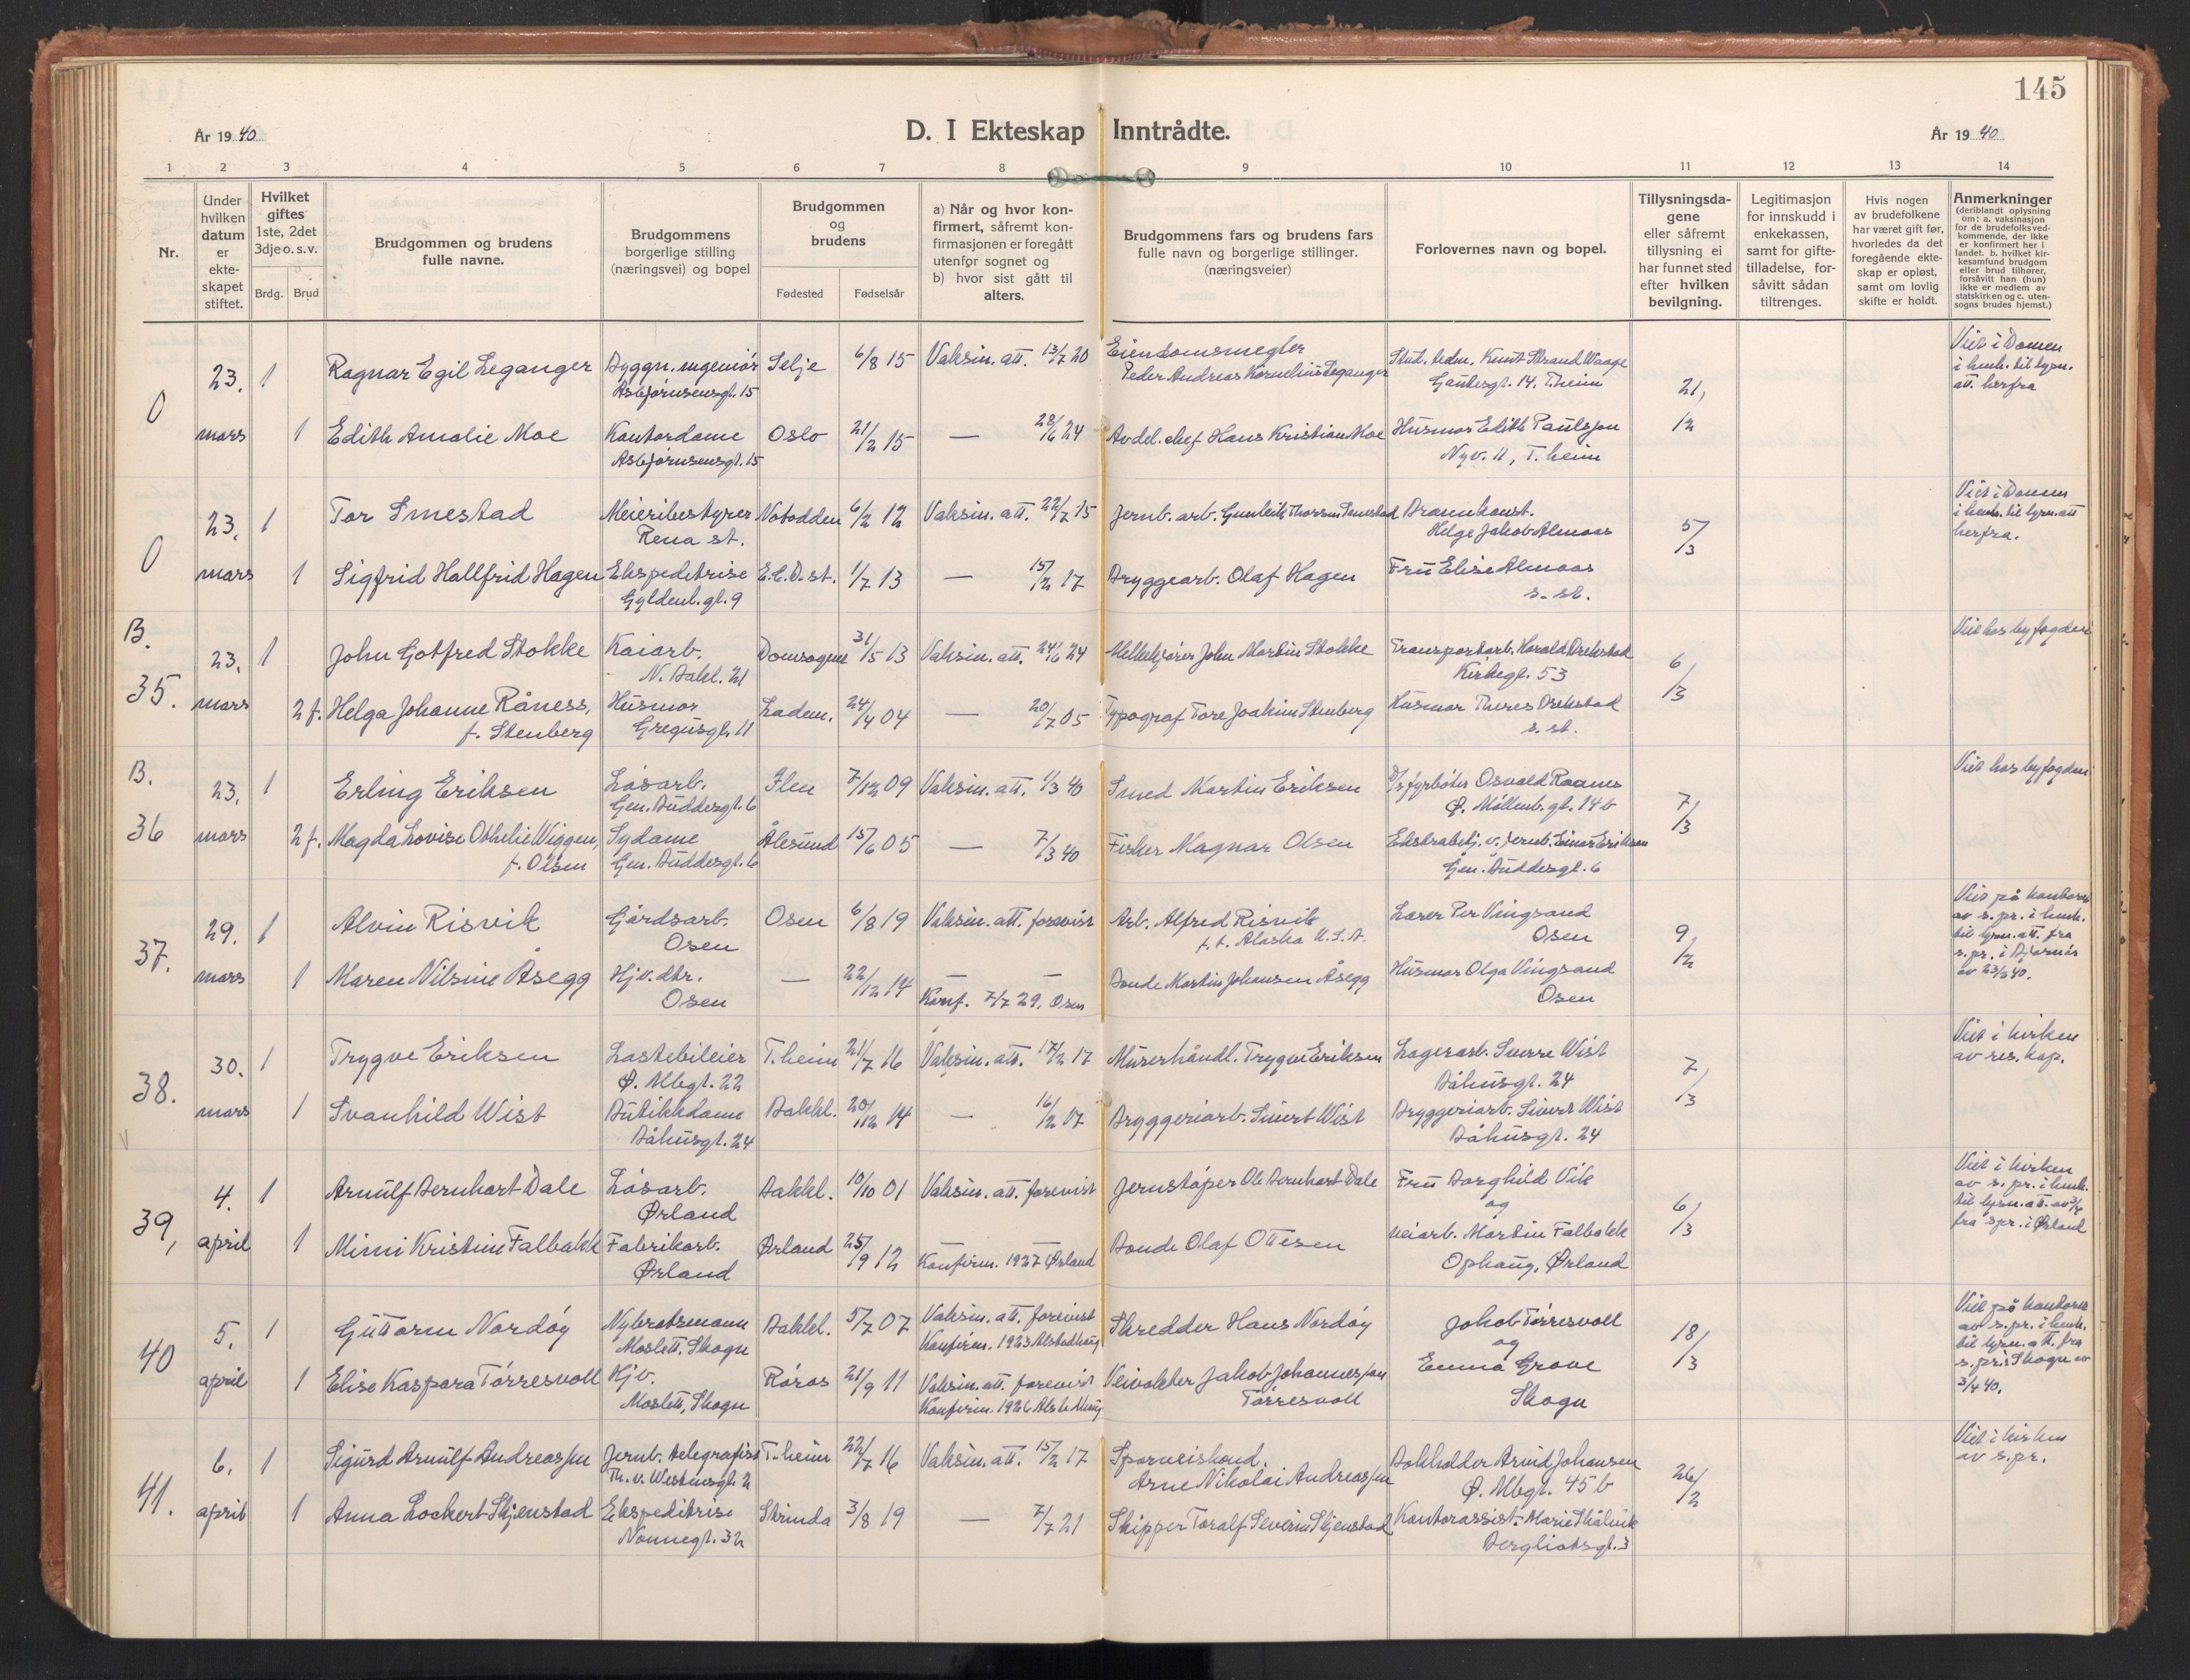 145
År 1940
D. I Ekteskap Inntrådte.
År 1940
1 2 3 4 5 6 7 8 9 10 11 12 13 14
Nr.
Under hvilken datum er ekte-skapet stiftet.
Hvilket giftes 1ste, 2det 3dje o. s. v.
Brdg. Brud
Brudgommen og brudens fulle navne.
Brudgommens borgerlige stilling (næringsvei) og bopel
Brudgommen og brudens
Fødested Fødselsår
a) Når og hvor kon-firmert, såfremt kon-firmasjonen er foregått utenfor sognet og
b) hvor sist gått til alters.
Brudgommens fars og brudens fars fulle navn og borgerlige stillinger. (næringsveier)
Forlovernes navn og bopel.
Tillysningsda-gene eller såfremt tillysning ei har funnet sted efter hvilken bevilgning.
Legitimasjon for innskudd i enkekassen, samt for gifte-tilladelse, for-såvitt sådan tiltrenges.
Hvis nogen av brudefolkene har været gift før, hvorledes da det foregående ekte-skap er opløst, samt om lovlig skifte er holdt.
Anmerkninger (deriblandt oplysning om: a. vaksinasjon for de brudefolksved-kommende, der ikke er konfirmert her i landet. b. hvilket kir-kesamfund brudgom eller brud tilhører, forsåvitt han (hun) ikke er medlem av statskirken og c. uten-sogns brudes hjemst.)
0 23. 1 Ragnar Egil Leganger Byggn. ingeniør Selje 6/8 15 Vaksin. att. 13/7 20 Eiendomsmegler Stud. techn. Knut Strand Waage 21/12 Viet i Domen
Asbjørnsensgt. 15 Peder Andreas Kornelius Leganger Gautesgt. 14. T.heim i henh. til lysn.
att. herfra
mars 1 Edith Amalie Moe Kontordame Oslo 21/2 15 — 28/6 24 Avdel. chef Hans Kristian Moe Husmor Edith Paulsson
Asbjørnsensgt. 15 Nyv. 11, T.heim
0 23. 1 Tor Smestad Meieribestyrer Notodden 6/2 12 Vaksin. att. 22/7 15 Jernb. arb. Gunleik Thorsen Smestad Brannkonst. 5/3 Viet i Domen
Rena st. Helge Jakob Almaas i henh. til lysn. att
herfra.
mars 1 Sigfrid Hallfrid Hagen Ekspeditrise E.C.D. st. 1/7 13 — 15/12 17 Bryggearb. Olaf Hagen Fru Elise Almaas
Gyldenl. gt. 9 s. st.
B. 35. 23. 1 John Gotfred Stokke Kaiarb. Domsogne 31/5 13 Vaksin. att. 24/6 24 Melkekjører John Martin Stokke Transportarb. Harald Drekstad 6/3 Viet hos byfogden
N. Bakl. 21 Kirkegt. 53
mars 2 f. Helga Johanne Råness, Husmor Ladem. 24/4 04 — 20/7 05 Typograf Tore Joakim Stenberg Husmor Theres Drekstad
f. Stenberg Gregusgt. 11 s. st.
B. 36 23. 1 Erling Eriksen Løsarb. Ilen 7/12 09 Vaksin. att. 1/3 40 Smed Martin Eriksen D/s fyrbøter Osvald Raanes 7/3 Viet hos byfogden
Gen. Buddesgt. 6 Ø. Møllenb. gt. 14 b
mars 2 f. Magda Lovise Othelie Wiggen, Sydame Ålesund 15/6 05 — 7/3 40 Fisker Magnar Olsen Ekstrabetj. v. jernb. Einar Eriksen
f. Olsen Gen. Buddesgt. 6 Gen. Buddesgt. 6
37. 29. 1 Alvin Risvik Gårdsarb. Osen 6/8 19 Vaksin. att. forevist Arb. Alfred Risvik Lærer Per Vingsand 9/2 Viet på kontoret
Osen t. t. Alaska U.S.A. Osen av s. pr. i henh.
til lysn. att. fra
mars 1 Maren Nilsine Åsegg Hjv. dtr. — 22/12 14 — — Bonde Martin Johansen Åsegg Husmor Olga Vingsand s. pr. i Bjørnør
Osen Konf. 7/7 29, Osen Osen av 23/2 40.
38. 30. 1 Trygve Eriksen Lastebileier T.heim 21/7 16 Vaksin. att. 17/2 17 Murerhåndl. Trygve Eriksen Lagerarb. Sverre Wist 7/3 Viet i kirken
Ø. Mbgt. 22 Båhusgt. 24 av res. kap.
mars 1 Svanhild Wist Butikkdame Bakkl. 20/12 14 — 16/2 17 Bryggeriarb. Sivert Wist Bryggeriarb. Sivert Wist
Båhusgt. 24 Båhusgt. 24
39, 4. 1 Arnulf Bernhart Dale Løsarb. Bakkl. 10/10 01 Vaksin. att. forevist Jernstøper Ole Bernhart Dale Fru Borghild Vik 6/3 Viet i kirken
Ørland og av s. pr. i henh.
til lysn. att. av 3/4
april 1 Mimi Kristine Falbakk Fabrikarb. Ørland 25/9 12 Konfirm. 1927 Ørland Bonde Olaf Ottesen Veiarb. Martin Falbakk fra s.pr. i Ørland
Ørland Ophaug, Ørland
40 5. 1 Guttorm Nordøy Nybrotsmann Bakkl. 5/7 07 Vaksin. att. forevist Skredder Hans Nordøy Jakob Tørresvoll 18/3 Viet på kontoret
Moslett, Skogn Konfirm. 1923 Alstadhaug og av s. pr. i henh.
til lysn. att. fra
april 1 Elise Kaspara Tørresvoll Hjv. Røros 21/9 11 Vaksin. att. forevist Veivokter Jakob Johannessen Emma Grove s. pr. i Skogn av
Moslett, Skogn Konfirm. 1926 Alstadhaug Tørresvoll Skogn 3/4 40.
41. 6. 1 Sigurd Arnulf Andreassen Jernb. telegrafist T.heim 22/7 16 Vaksin. att. 15/2 17 Sporveiskond. Bokholder Arvid Johansen 26/2 Viet i kirken
Th. v. Westensgt. 2 Arne Nikolai Andreassen Ø. Mbgt. 45 b av s. pr.
april 1 Anna Lockert Skjenstad Ekspeditrise Strinda 3/8 19 — 7/7 21 Skipper Toralf Severin Skjenstad Kontorassist. Marie Skålvik
Nonnegt. 32 Bergliotsgt. 3